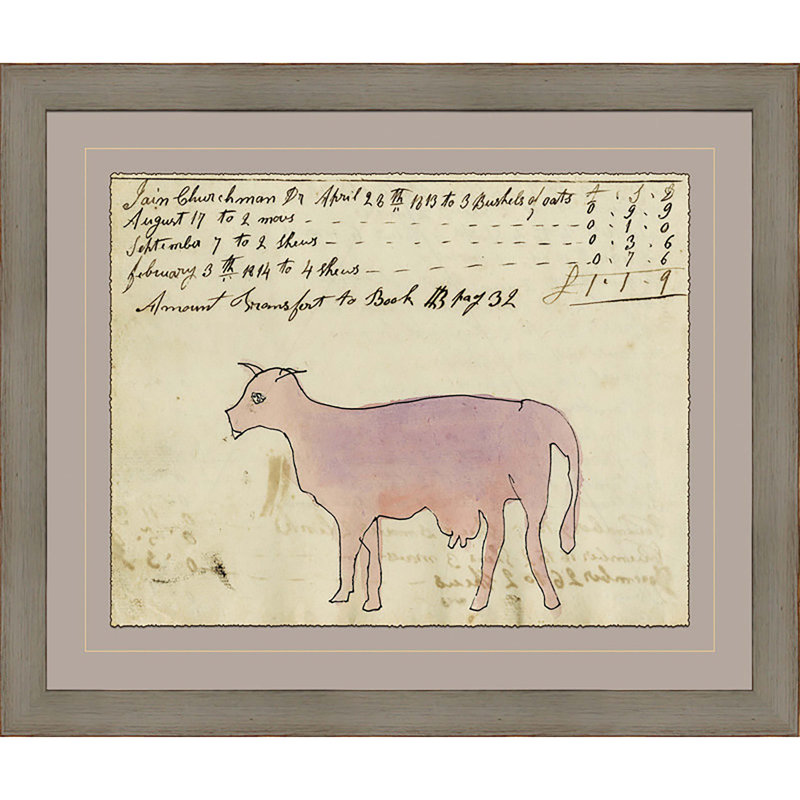 Iain Churchman Dr April 28th 1813 to 3 Bushels of oats £ . S . D
0 . 9 . 9
August 17 to 2 movs 0 . 1 . 0
September 7 to 2 shews 0 . 3 . 6
february 3th 1814 to 4 shews 0 . 7 . 6
£ 1 . 1 . 9
Amount Transfort to Book B pag 32